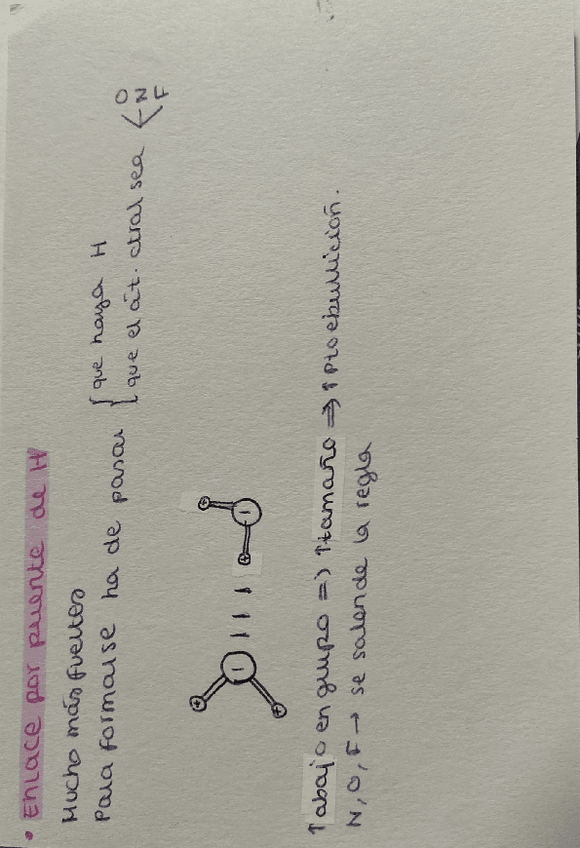 • Enlace por puente de H
Mucho más fuertes
Para formarse ha de pasar { que haya H
{ que el át. ctral sea < O N F
+ - + + - +
↑ abajo en grupo => ↑ tamaño => ↑ Pto ebullición.
N, O, F → se salen de la regla